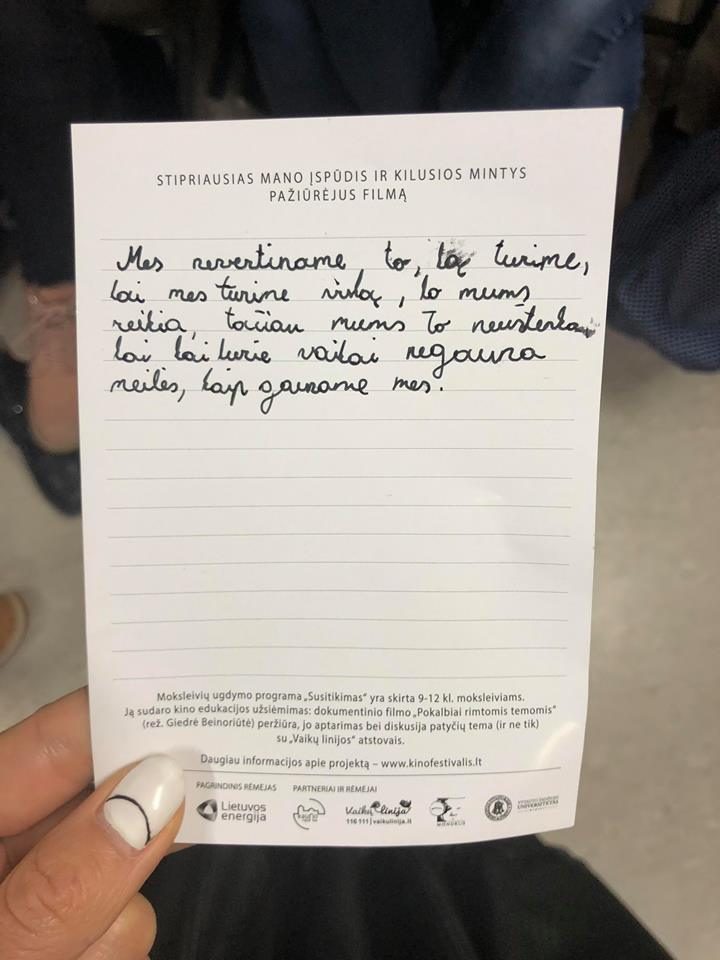 STIPRIAUSIAS MANO ĮSPŪDIS IR KILUSIOS MINTYS
PAŽIŪRĖJUS FILMĄ
Mes nevertiname to, ką turime,
kai mes turime viską, ko mums
reikia, tačiau mums to neužtenka
kai kai kurie vaikai negauna
meilės, kaip gauname mes.
Moksleivių ugdymo programa „Susitikimas“ yra skirta 9-12 kl. moksleiviams.
Ją sudaro kino edukacijos užsiėmimas: dokumentinio filmo „Pokalbiai rimtomis temomis“
(rež. Giedrė Beinoriūtė) peržiūra, jo aptarimas bei diskusija patyčių tema (ir ne tik)
su „Vaikų linijos“ atstovais.
Daugiau informacijos apie projektą – www.kinofestivalis.lt
PAGRINDINIS RĖMĖJAS PARTNERIAI IR RĖMĖJAI
Lietuvos
energija
Vaikų linija
116 111 | vaikulinija.lt
UNIVERSITETAS